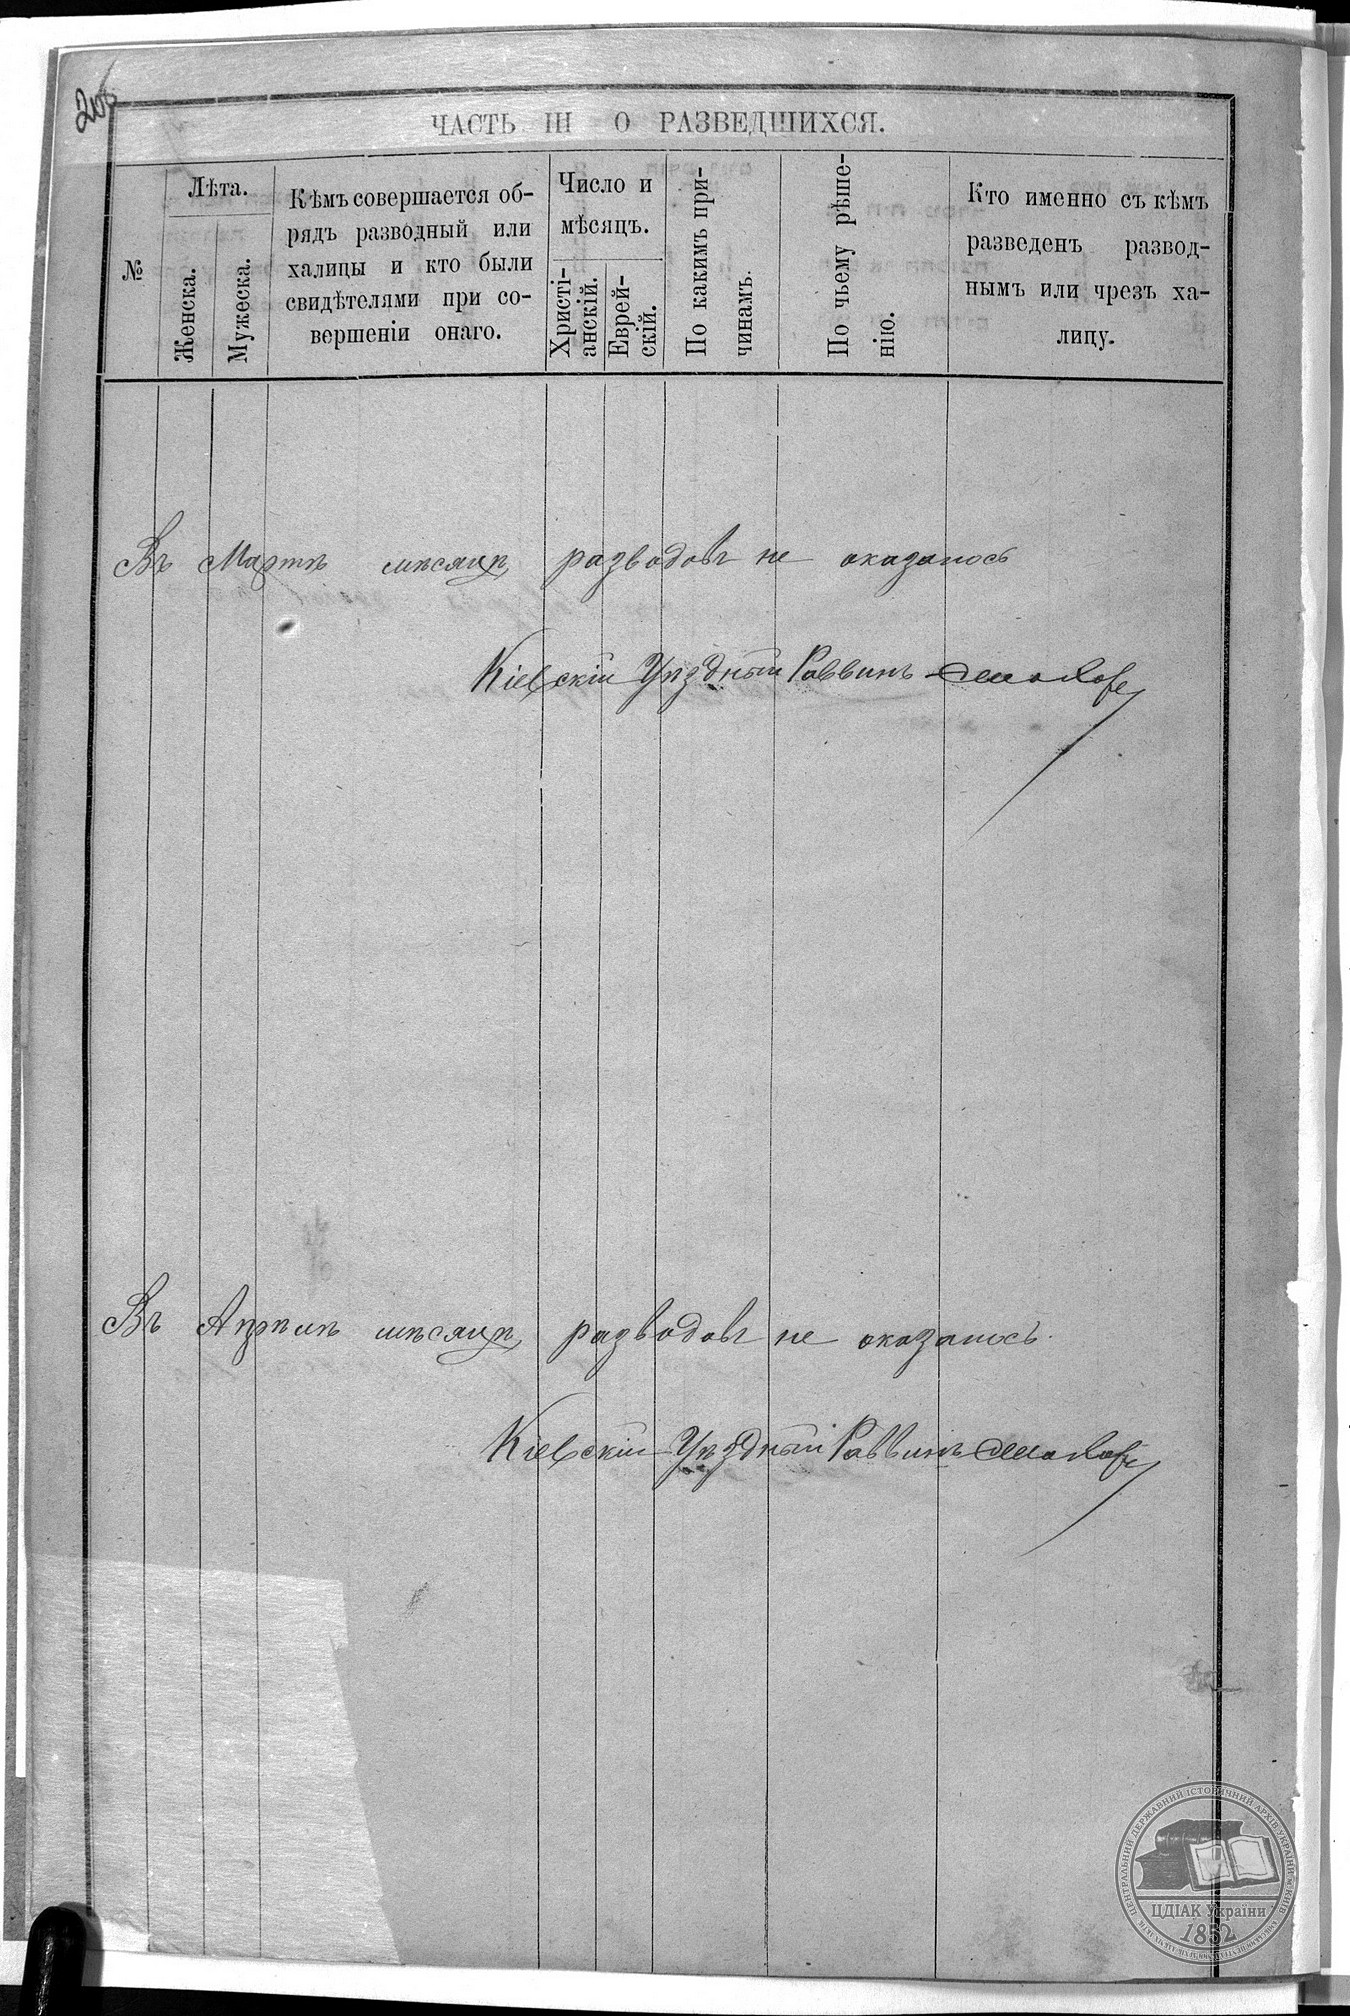 ЧАСТЬ III О РАЗВЕДШИХСЯ.
№
Лѣта.
Женска.
Мужеска.
Кѣмъ совершается об-
рядъ разводный или
халицы и кто были
свидѣтелями при со-
вершеніи онаго.
Число и
мѣсяцъ.
Христі-
анскій.
Еврей-
скій.
По какимъ при-
чинамъ.
По чьему рѣше-
нію.
Кто именно съ кѣмъ
разведенъ развод-
нымъ или чрезъ ха-
лицу.
Въ Мартѣ мѣсяцѣ разводовъ не оказалось
Кіевскій Уѣздный Раввинъ
Въ Апрѣлѣ мѣсяцѣ разводовъ не оказалось.
Кіевскій Уѣздный Раввинъ
ЦЕНТРАЛЬНИЙ ДЕРЖАВНИЙ ІСТОРИЧНИЙ АРХІВ УКРАЇНИ М.КИЇВ
ЦДІАК України
1852